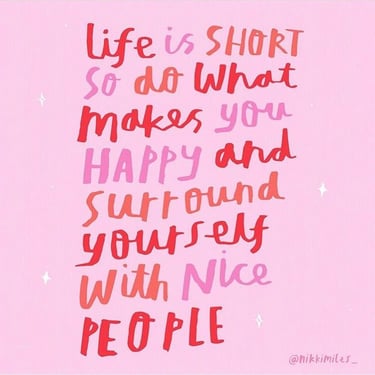 life is SHORT
So do What
makes you
HAPPY and
Surround
yourself
With Nice
PEOPLE
@nikkimiles_